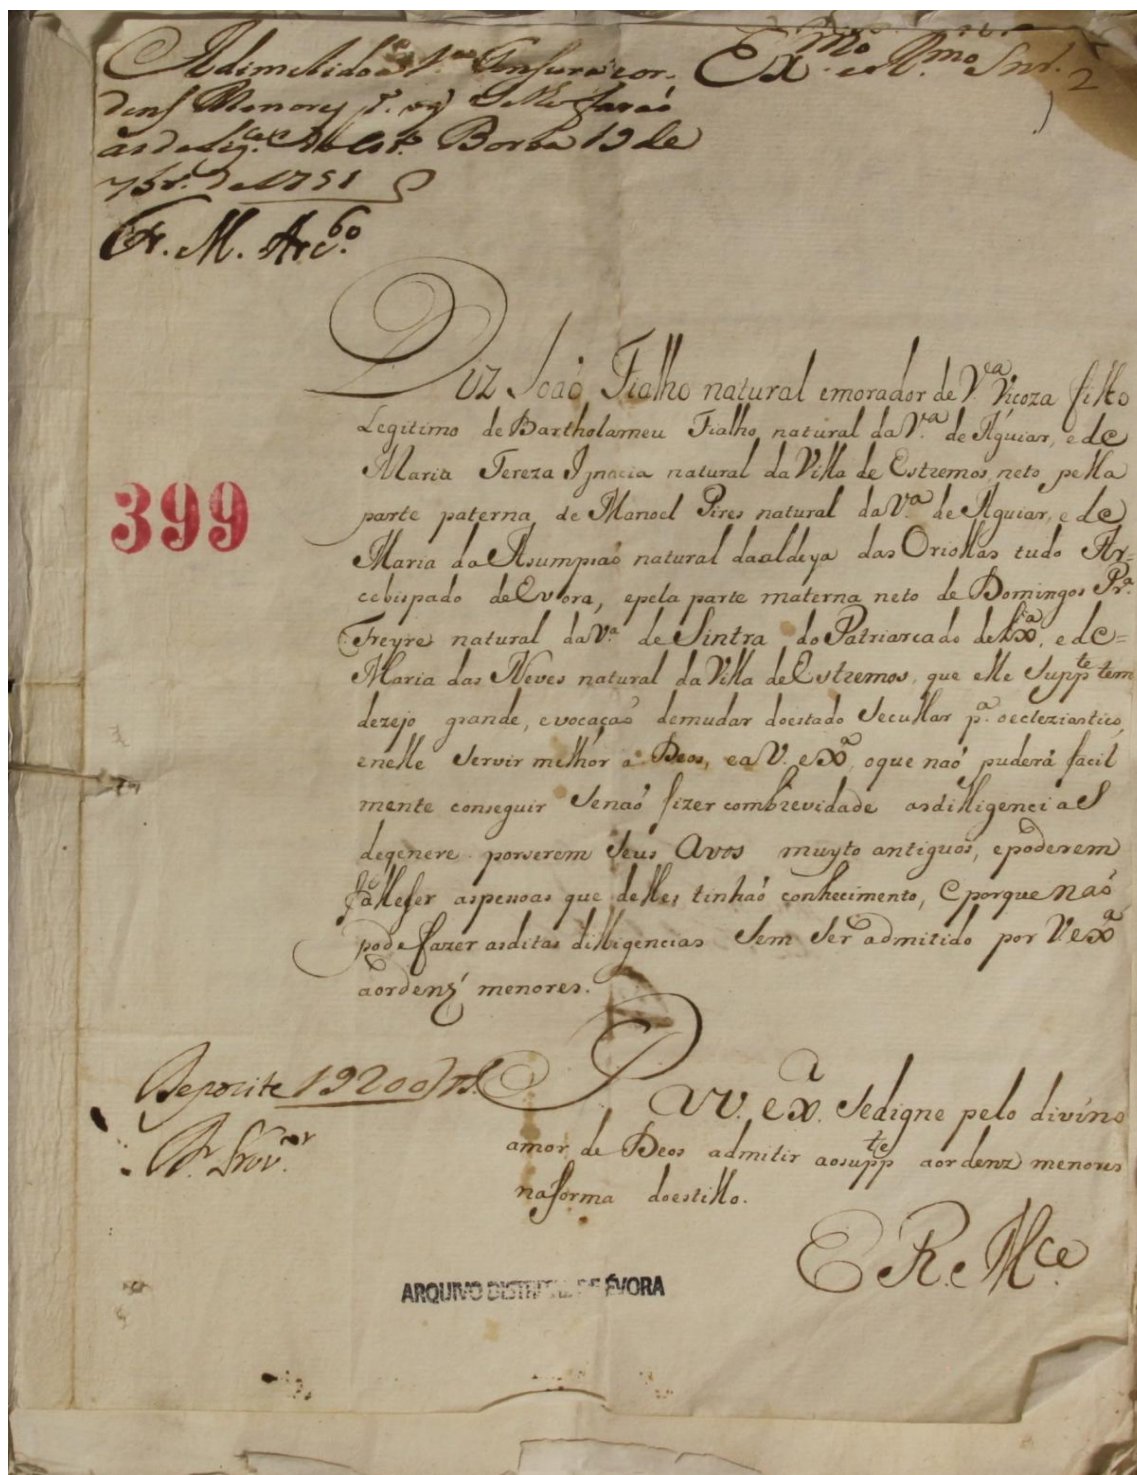 Admitido a 1.ª Tonsura e or-
dens Menores p.ª o q̃ se lhe farão
as delig.cas do est.º Borba 19 de
7br.º de 1751
Fr. M. Arcb.º
Ex.mo e R.mo Snr.
2
Diz João Fialho natural emorador de V.ª Viçoza filho
Legitimo de Bartholameu Fialho natural da V.ª de Aguiar, e de
Maria Tereza Ignacia natural da Villa de Estremos, neto pella
parte paterna de Manoel Pires natural da V.ª de Aguiar, e de
Maria da Asumpsaõ natural daaldeya das Oriollas tudo Ar=
cebispado deEvora, epela parte materna neto de Domingos Pr.ª
Freyre natural da V.ª de Sintra do Patriarcado de Lx.ª, e de=
Maria das Neves natural da Villa deEstremos, que elle Supp.te tem
dezejo grande, evocaçaõ demudar doestado Secullar p.ª oecleziastico,
enelle Servir melhór a Deos, ea V. exª, oque naõ puderá facil
mente conseguir Senaõ fizer combrevidade asdilligencias
degenere porserem Seus Avos muyto antiguos, epoderem
falleser aspesoas que delles tinhaõ conhecimento, Eporque naõ
pode fazer asditas dilligencias Sem Ser admitido por V exª
aordenz menores.
399
Depozite 19200 rs.
Pr. Prov.or
P a V. exª. Sedigne pelo divino
amor de Deos admitir aosupp.te aordenz menores
naforma doestillo.
E R. Mce.
ARQUIVO DISTRITAL DE ÉVORA